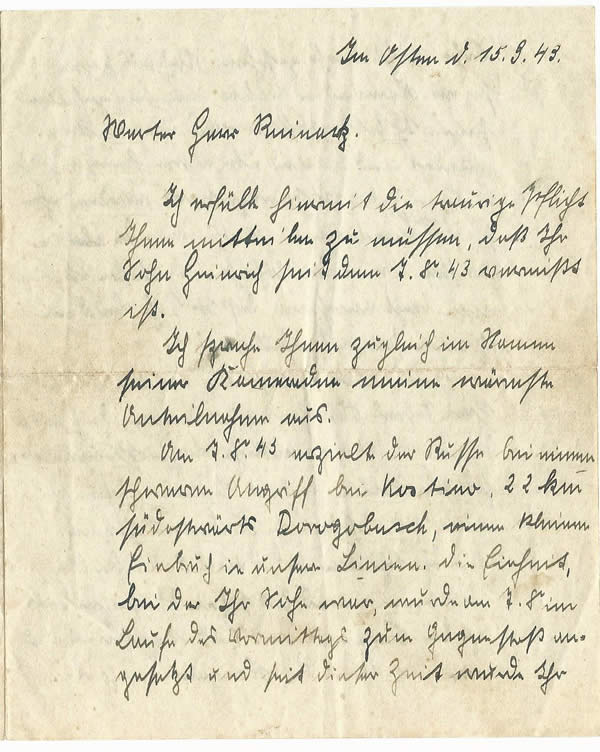 Im Osten d. 15.9.43.
Werter Herr Reinartz.
Ich erfülle hiermit die traurige Pflicht
Ihnen mitteilen zu müssen, daß Ihr
Sohn Heinrich seit dem 7. 8. 43 vermißt
ist.
Ich spreche Ihnen zugleich im Namen
seiner Kameraden meine wärmste
Anteilnahme aus.
Am 7. 8. 43 erzielte der Russe bei einem
schweren Angriff bei Kostino, 22 km
südostwärts Dorogobusch, einen kleinen
Einbruch in unsere Linien. Die Einheit,
bei der Ihr Sohn war, wurde am 7. 8. im
Laufe des Vormittags zum Gegenstoß an-
gesetzt und seit dieser Zeit wurde Ihr